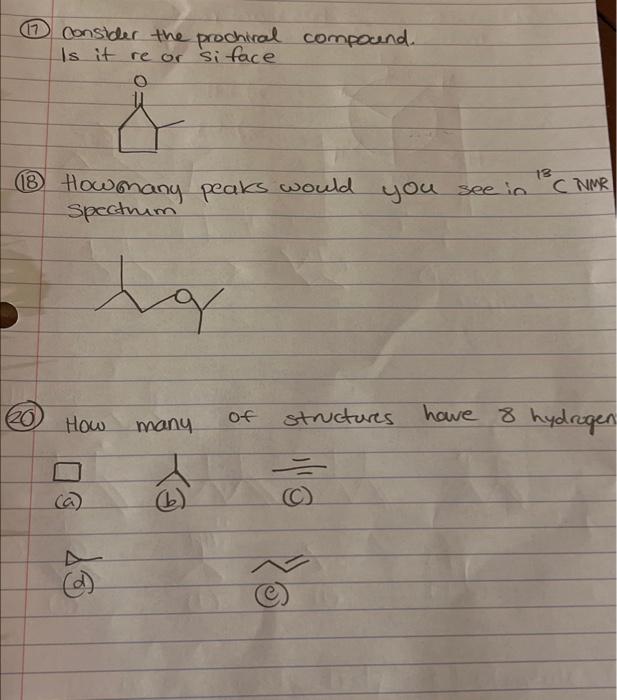 17 Consider the prochiral compound.
Is it re or si face
O
18 How many peaks would you see in 13C NMR
spectrum
O
20 How many of structures have 8 hydrogen
(a) (b) (c)
(d) (e)